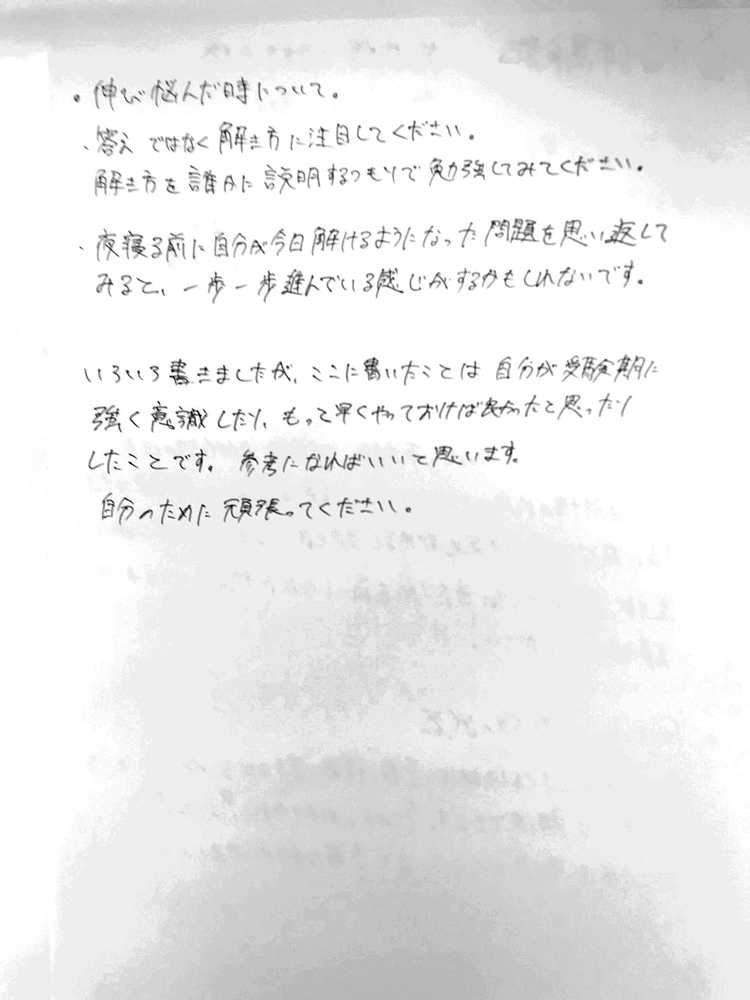 。伸び悩んだ時について。
・答えではなく解き方に注目してください。
解き方を誰かに説明するつもりで勉強してみてください。
・夜寝る前に自分が今日解けるようになった問題を思い返して
みると、一歩一歩進んでいる感じがするかもしれないです。
いろいろ書きましたが、ここに書いたことは自分が受験期に
強く意識したり、もっと早くやっておけば良かったと思ったり
したことです。参考になればいいと思います。
自分のために頑張ってください。